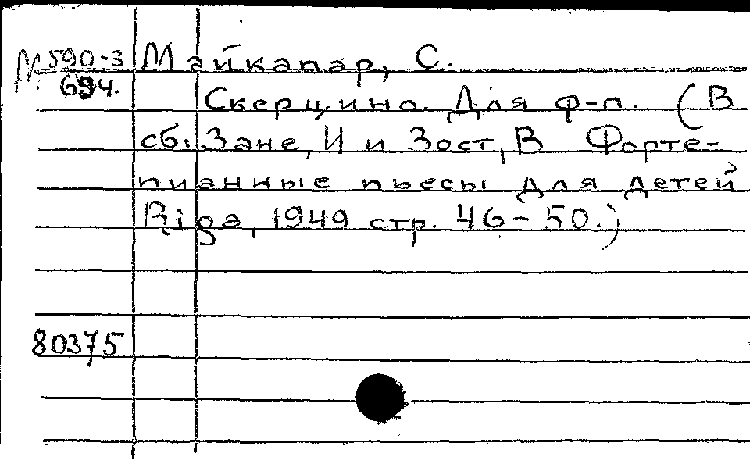 М 590-3 Майкапар, С.
694.
Скерцино. Для ф-п. (В
сб. Зане, И и Зост, В Форте-
пианные пьесы для детей
Riga, 1949 стр. 46-50.)
80375